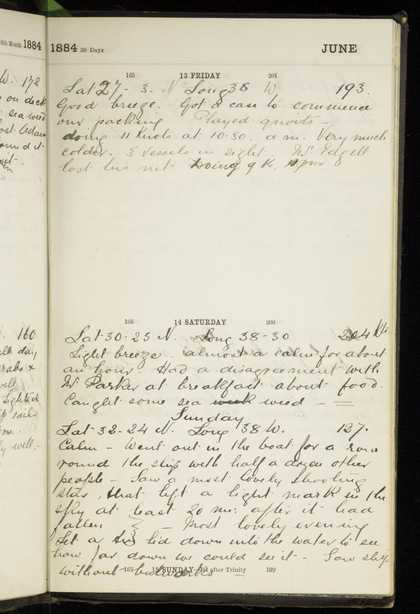 6th Month 1884
W. 172
on deck
sea weed
1884 30 Days JUNE
165 13 FRIDAY 201
Lat 27-3. N Long 38 W 193.
Good breeze. Got a case to commence
our packing Played quoits -
doing 11 knots at 10.30. a.m. Very much
colder. 5 vessels in sight. Mr Edgell
lost his net Doing 9 K. 11 pm
166 14 SATURDAY 200
Lat 30-25 N. Long 38-30 204 Kts
Light breeze almost a calm for about
an hour. Had a disagreement with
Mr Parker at breakfast about food.
Caught some sea weed -
Sunday
Lat 32-24 N. Long 38 W. 127.
Calm - Went out in the boat for a row
round the ship with half a dozen other
people - Saw a most lovely shooting
star, that left a light mark in the
sky at least 20 ms. after it had
fallen - Most lovely evening
Let a tin lid down into the water to see
how far down we could see it - Saw ship
without
SUNDAY-1st after Trinity 199
160
day